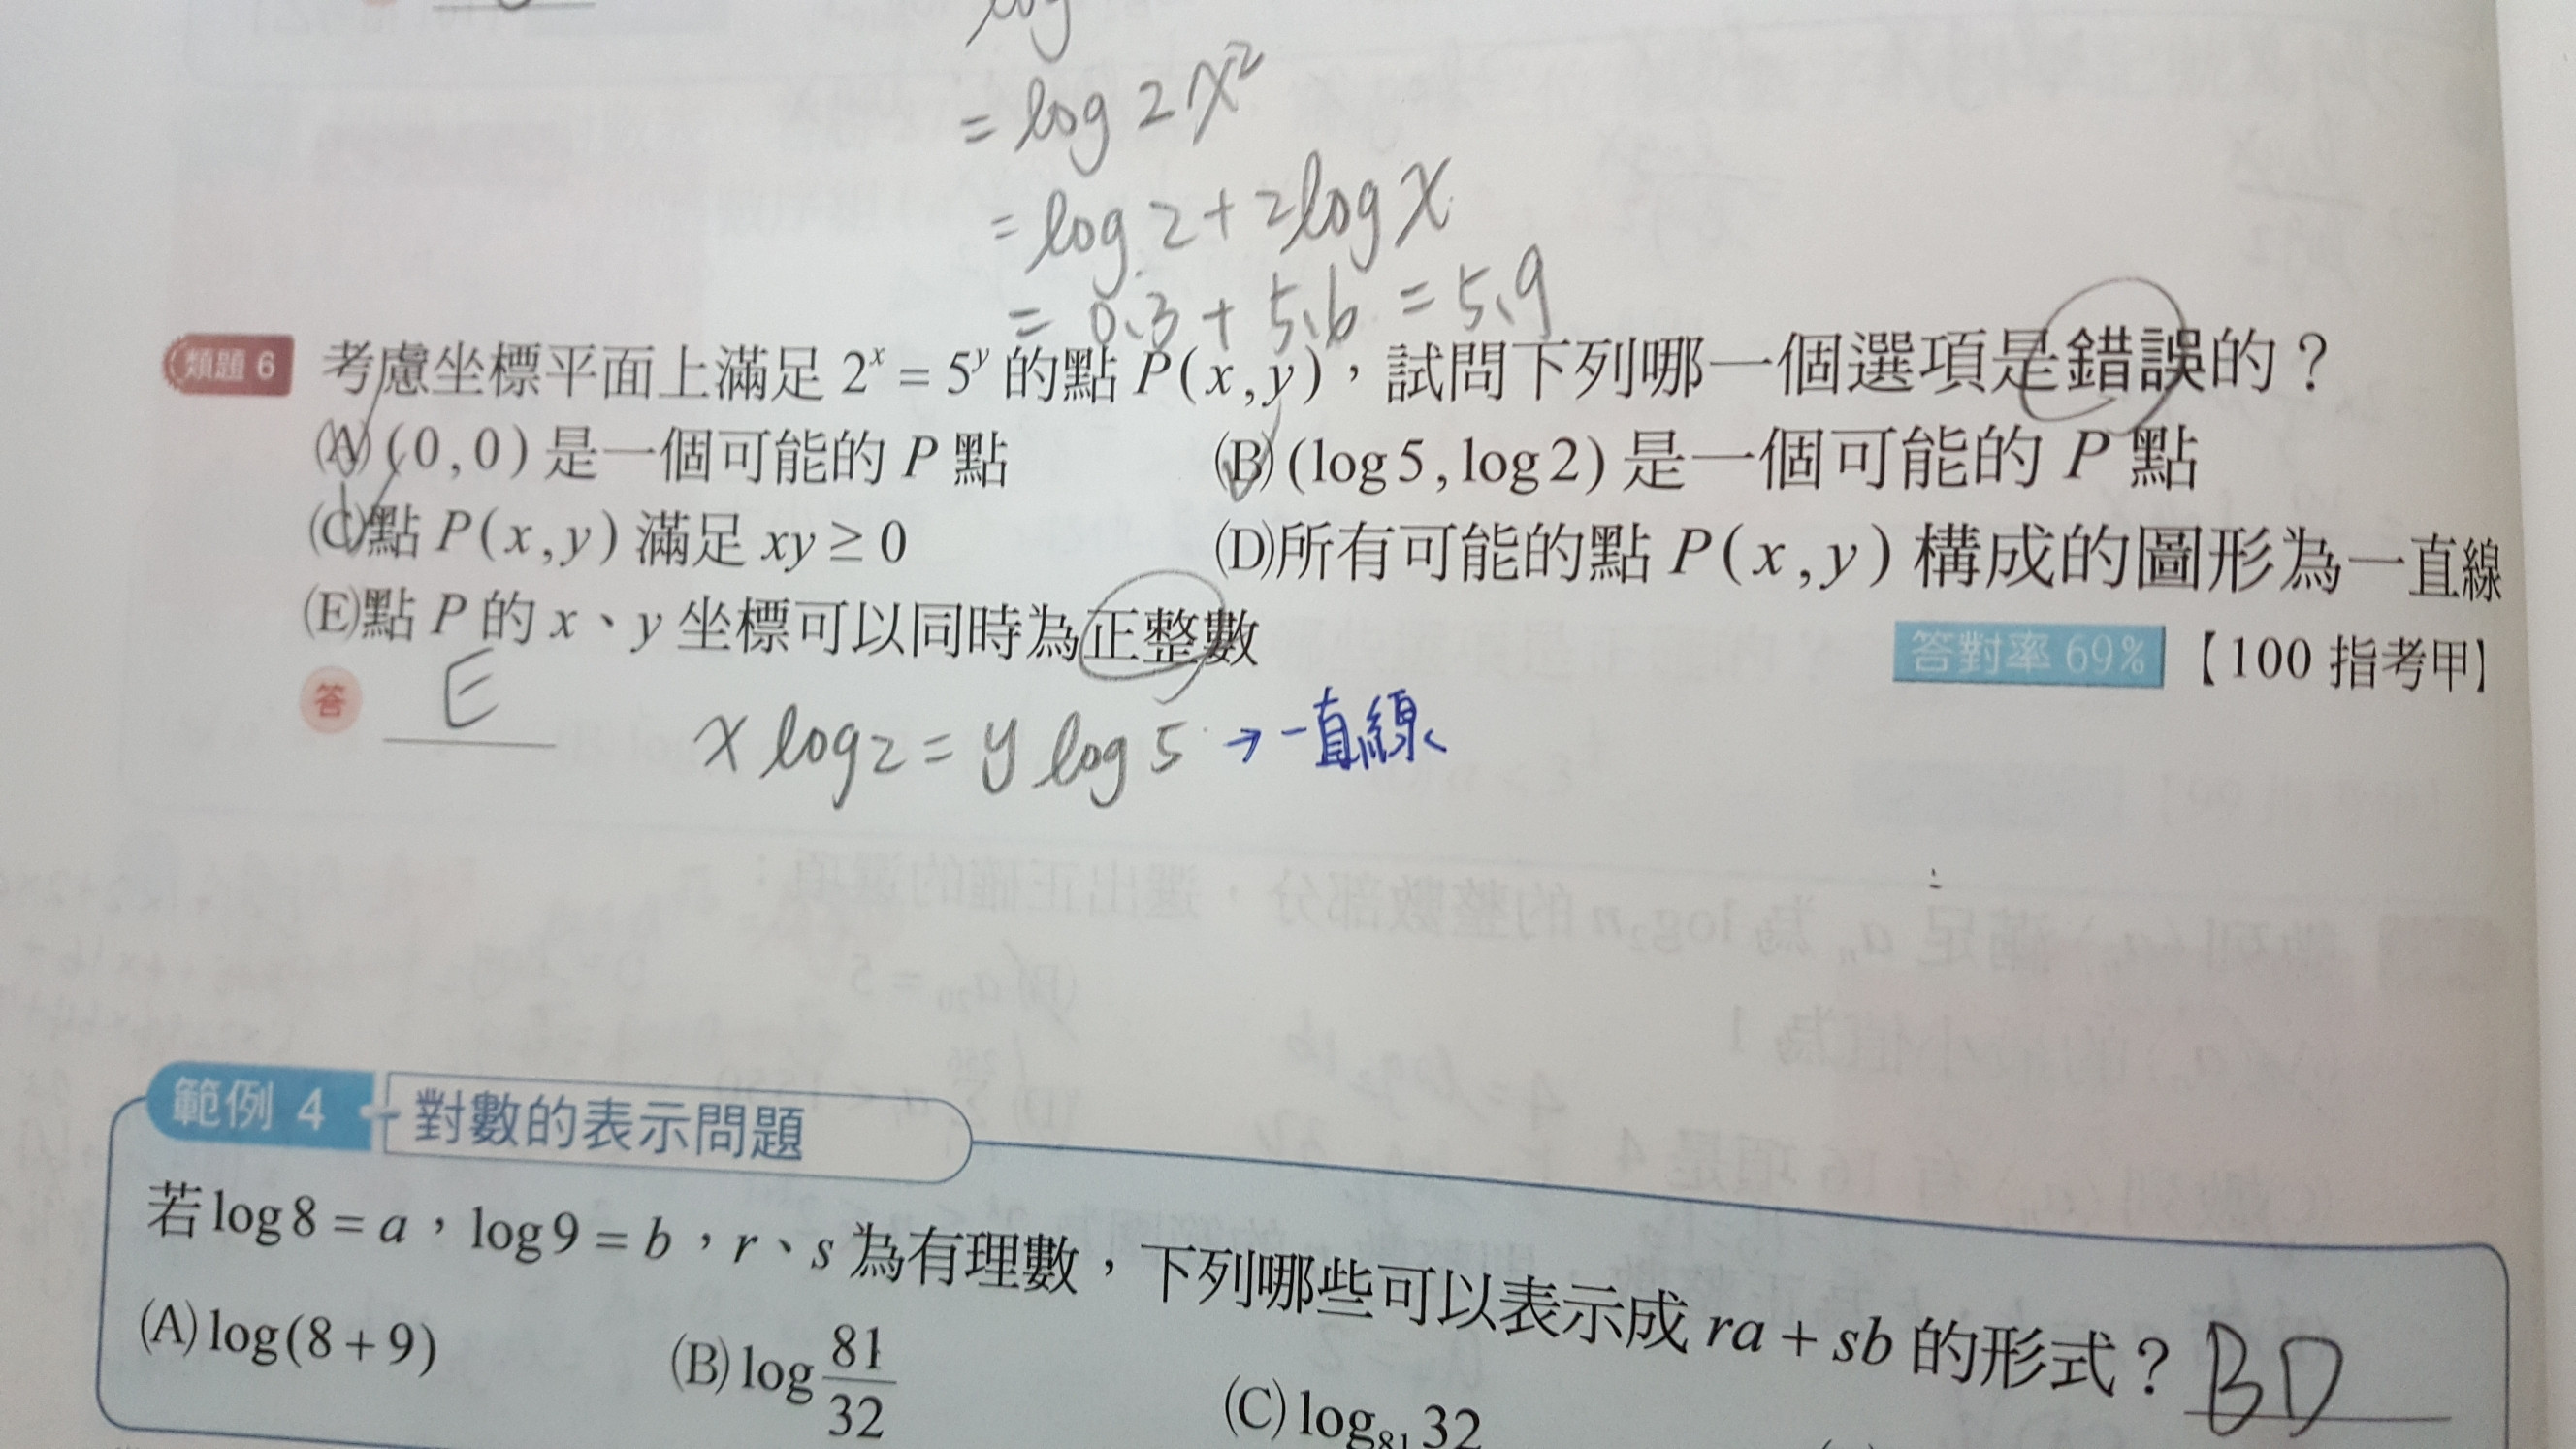 log
= log 2x²
= log 2 + 2log x
= 0.3 + 5.6 = 5.9
類題 6 考慮坐標平面上滿足 2ˣ = 5ʸ 的點 P(x,y)，試問下列哪一個選項是錯誤的？
(A)(0,0)是一個可能的 P 點 (B)(log5,log2)是一個可能的 P 點
(C)點 P(x,y) 滿足 xy ≥ 0 (D)所有可能的點 P(x,y) 構成的圖形為一直線
(E)點 P 的 x、y 坐標可以同時為正整數
答對率 69% 【100 指考甲】
答 E
x log 2 = y log 5 → 一直線
範例 4 對數的表示問題
若 log8 = a，log9 = b，r、s 為有理數，下列哪些可以表示成 ra + sb 的形式？ BD
(A) log(8+9) (B) log 81/32 (C) log₈₁32